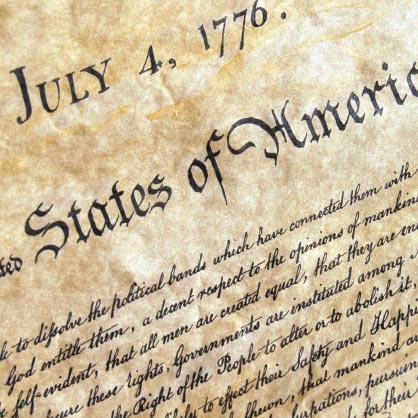 JULY 4, 1776.
ted States of Americ
le to dissolve the political bands which have connected them with
God entitle them, a decent respect to the opinions of mankind
self-evident, that all men are created equal, that they are en
cure these rights, Governments are instituted among
the Right of the People to alter or to abolish it,
likely to effect their Safety and Happi
shewn, that mankind ar
usurpations, pursuin